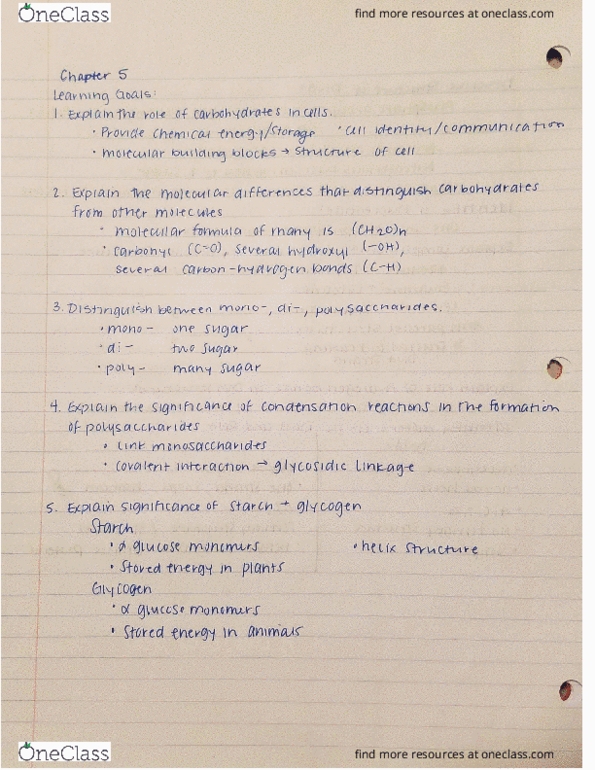 OneClass
find more resources at oneclass.com
Chapter 5
Learning Goals:
1. Explain the role of carbohydrates in cells.
• Provide chemical energy/storage • cell identity/communication
• molecular building blocks → structure of cell
2. Explain the molecular differences that distinguish carbohydrates
from other molecules
• molecular formula of many is (CH2O)n
• carbonyl (C=O), several hydroxyl (-OH),
several carbon-hydrogen bonds (C-H)
3. Distinguish between mono-, di-, polysaccharides.
• mono - one sugar
• di - two sugar
• poly - many sugar
4. Explain the significance of condensation reactions in the formation
of polysaccharides
• Link monosaccharides
• covalent interaction → glycosidic linkage
5. Explain significance of starch + glycogen
Starch
• α glucose monomers • helix structure
• Stored energy in plants
Glycogen
• α glucose monomers
• Stored energy in animals
OneClass
find more resources at oneclass.com